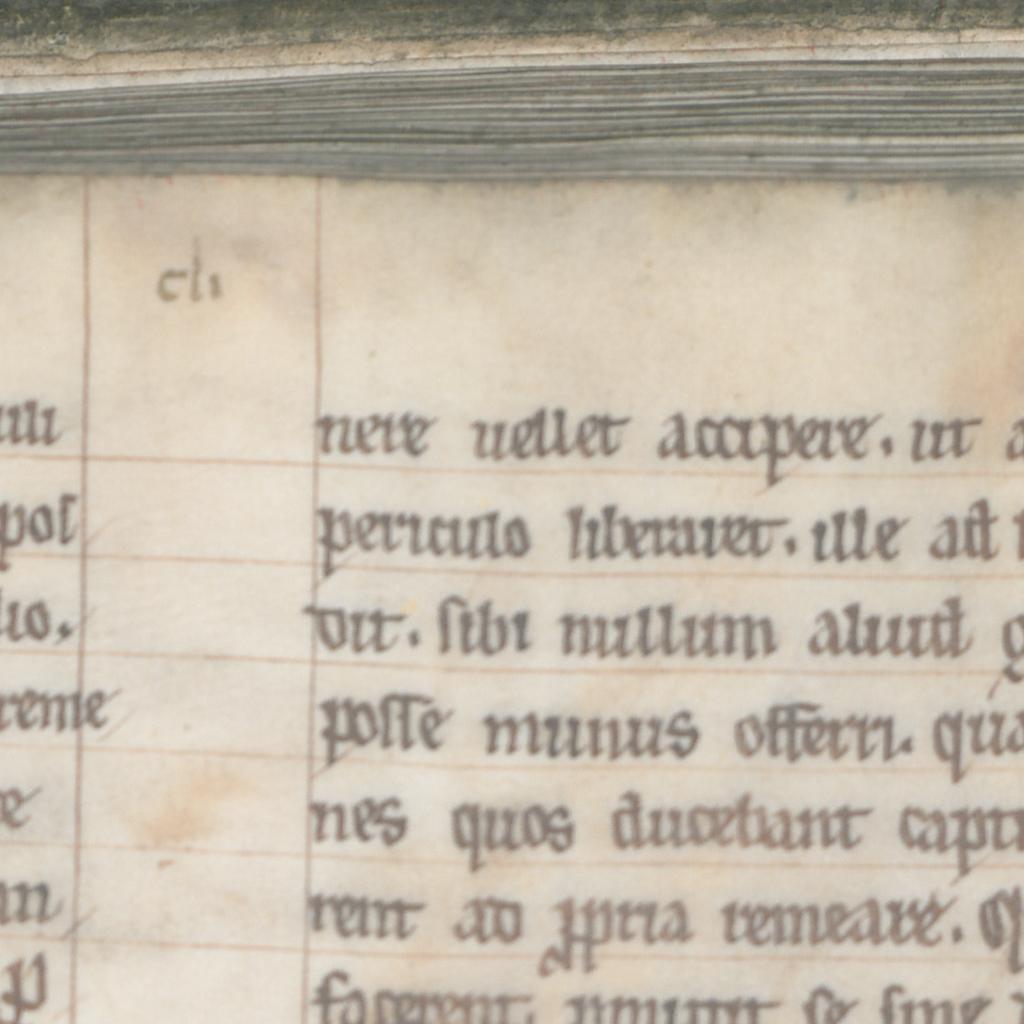 cli
pos
lio.
reme
nere uellet accipere. ut a
periculo liberaret. ille ad
dit. sibi nullum aliud g
posse munus offerri. qua
nes quos ducebant capti
rent ad ꝓpria remeare. Q
facerent. se sine